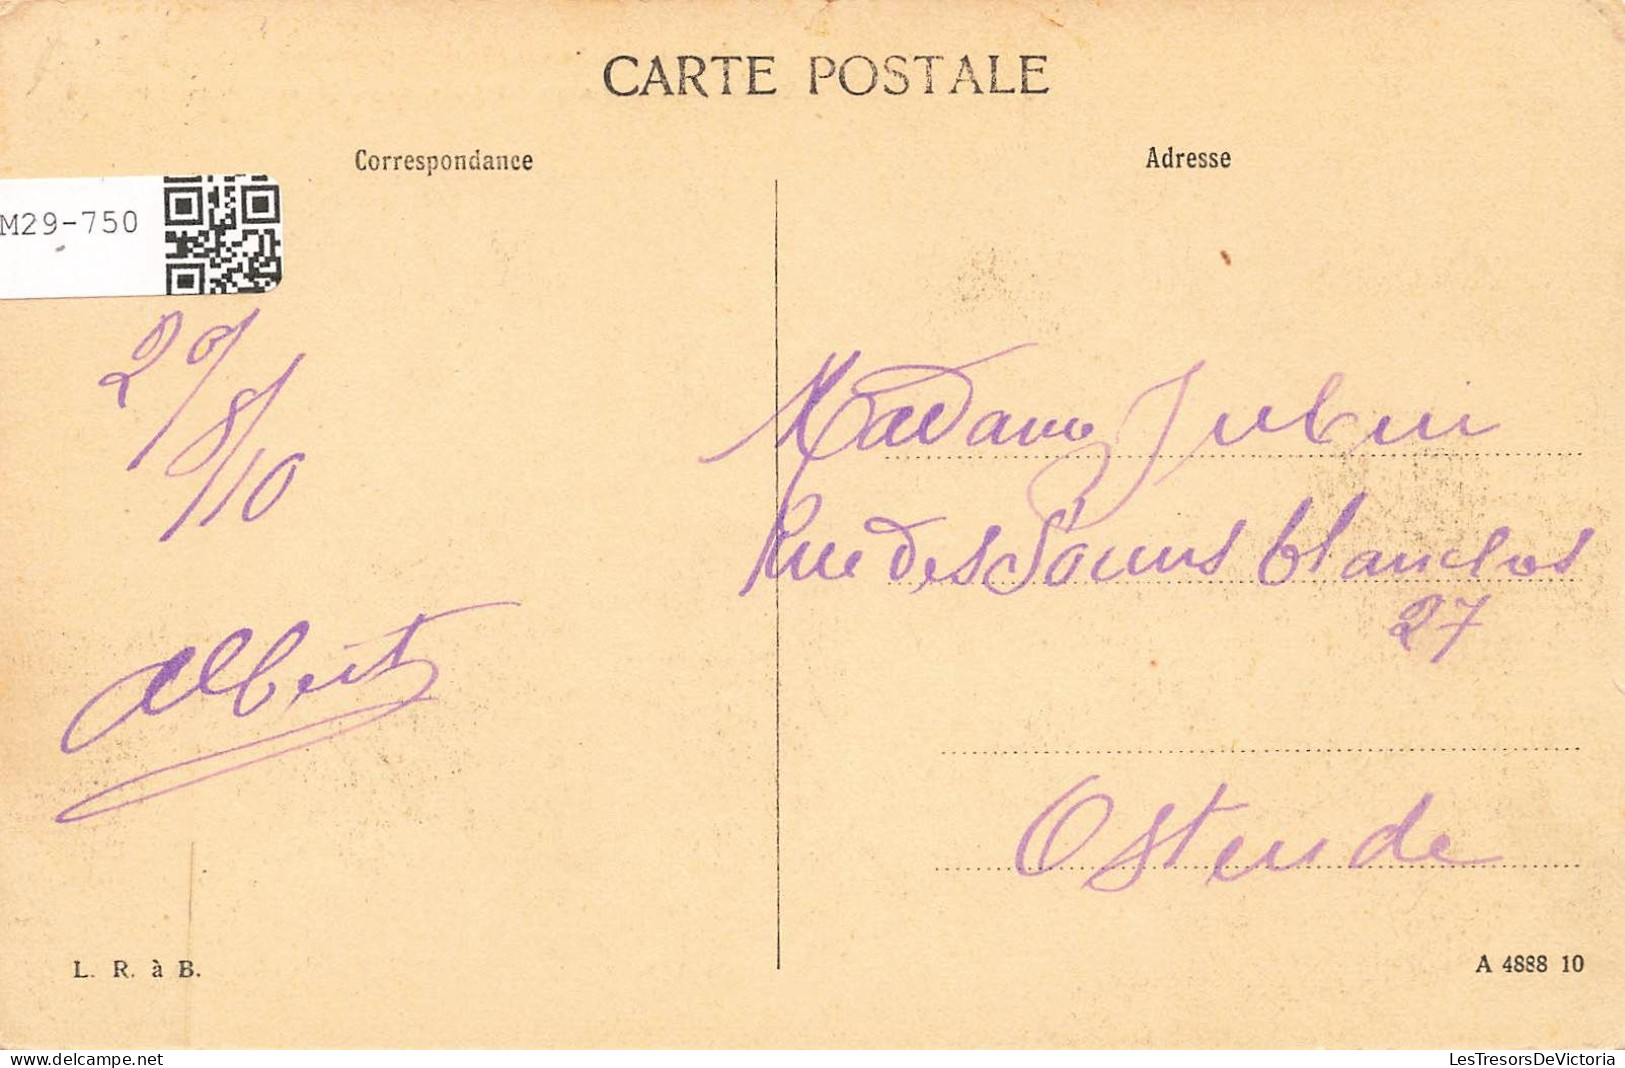 CARTE POSTALE
Correspondance
Adresse
M29-750
29/8/10
Madame
Rue des Sœurs blanches
27
Albert
Ostende
L. R. à B.
A 4888 10
LesTresorsDeVictoria
delcampe.net